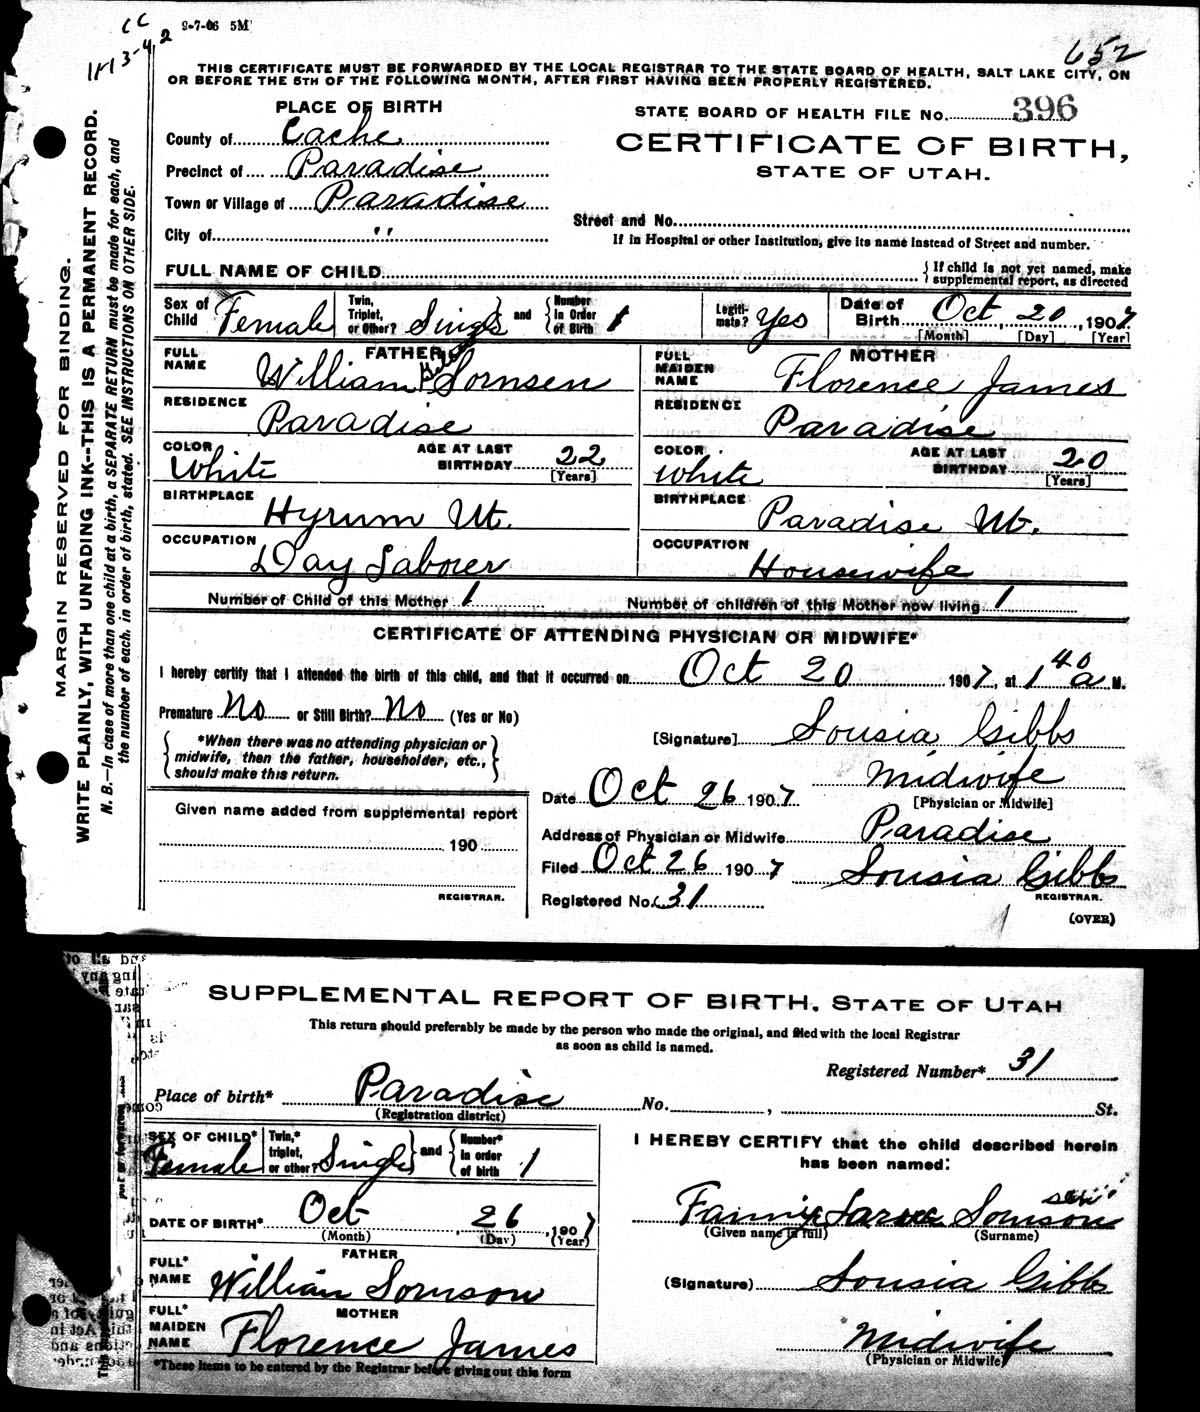 9-7-06 5M
CC
3-4 2
652
THIS CERTIFICATE MUST BE FORWARDED BY THE LOCAL REGISTRAR TO THE STATE BOARD OF HEALTH, SALT LAKE CITY, ON
OR BEFORE THE 5TH OF THE FOLLOWING MONTH, AFTER FIRST HAVING BEEN PROPERLY REGISTERED.
MARGIN RESERVED FOR BINDING.
WRITE PLAINLY, WITH UNFADING INK--THIS IS A PERMANENT RECORD.
N. B.—In case of more than one child at a birth, a SEPARATE RETURN must be made for each, and
the number of each, in order of birth, stated. SEE INSTRUCTIONS ON OTHER SIDE.
PLACE OF BIRTH
County of Cache
Precinct of Paradise
Town or Village of Paradise
City of "
STATE BOARD OF HEALTH FILE No. 396
CERTIFICATE OF BIRTH,
STATE OF UTAH.
Street and No.
If in Hospital or other Institution, give its name instead of Street and number.
FULL NAME OF CHILD
{ If child is not yet named, make
supplemental report, as directed
Sex of Child Female
Twin, Triplet, or Other? Single and Number in Order of Birth 1
Legiti-mate? Yes
Date of Birth Oct 20, 1907
[Month] [Day] [Year]
FATHER
FULL NAME William Sornsen
RESIDENCE Paradise
COLOR White AGE AT LAST BIRTHDAY 22 [Years]
BIRTHPLACE Hyrum Ut.
OCCUPATION Day Laborer
MOTHER
FULL MAIDEN NAME Florence James
RESIDENCE Paradise
COLOR White AGE AT LAST BIRTHDAY 20 [Years]
BIRTHPLACE Paradise Ut.
OCCUPATION Housewife
Number of Child of this Mother 1 Number of children of this Mother now living 1
CERTIFICATE OF ATTENDING PHYSICIAN OR MIDWIFE*
I hereby certify that I attended the birth of this child, and that it occurred on Oct 20 1907, at 1 40 a M.
Premature No or Still Birth? No (Yes or No)
{ *When there was no attending physician or
midwife, then the father, householder, etc.,
should make this return. }
[Signature] Sousia Gibbs
Midwife
[Physician or Midwife]
Date Oct 26 1907
Address of Physician or Midwife Paradise
Filed Oct 26 1907 Sousia Gibbs
REGISTRAR.
Registered No. 31
(OVER)
Given name added from supplemental report
190
REGISTRAR.
SUPPLEMENTAL REPORT OF BIRTH, STATE OF UTAH
This return should preferably be made by the person who made the original, and filed with the local Registrar
as soon as child is named.
Registered Number* 31
Place of birth* Paradise No. , St.
(Registration district)
SEX OF CHILD* Female
Twin,* triplet, or other? Single and Number* in order of birth 1
DATE OF BIRTH* Oct 26, 1907
(Month) (Day) (Year)
FATHER
FULL* NAME William Sornson
MOTHER
FULL* MAIDEN NAME Florence James
*These items to be entered by the Registrar before giving out this form
I HEREBY CERTIFY that the child described herein
has been named:
sen
Sornson
(Given name in full) (Surname)
(Signature) Sousia Gibbs
Midwife
(Physician or Midwife)